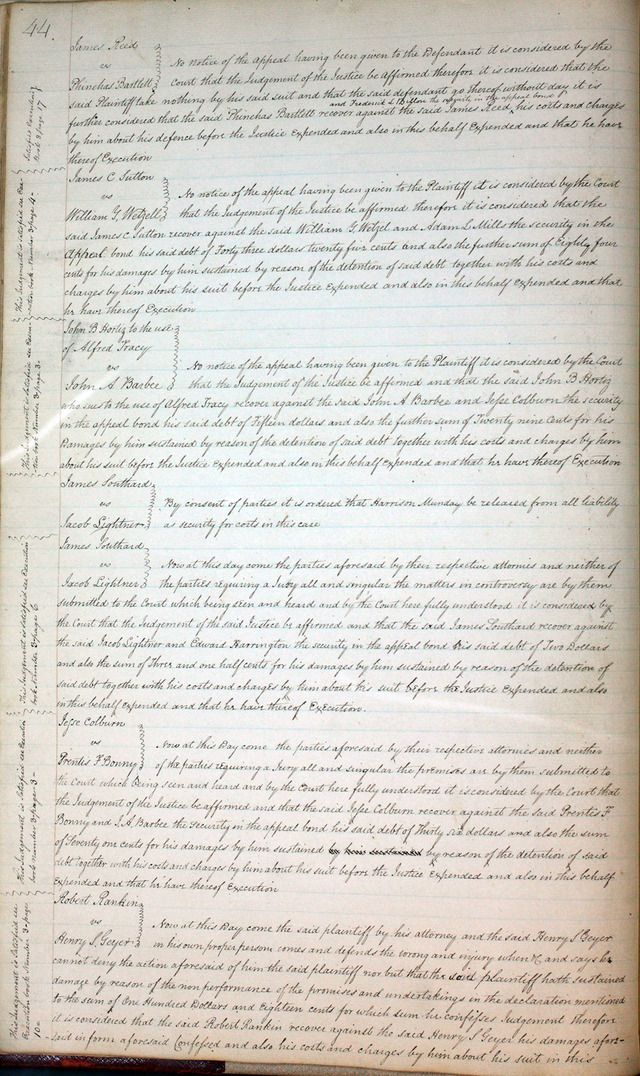 44
James Reed
vs
No notice of the appeal having been given to the Defendant it is considered by the
Phinehas Bartlett
Court that the Judgement of the Justice be affirmed therefore it is considered that the
said Plaintiff take nothing by his said suit and that the said defendant go thereof without day it is
and Frederick L Billon the security in the appeal bond
further considered that the said Phinehas Bartlett recover against the said James Reed his costs and charges
by him about his defence before the Justice Expended and also in this behalf Expended and that he have
thereof Execution
James C Sutton
vs
No notice of the appeal having been given to the Plaintiff it is considered by the Court
William G, Wetzell
that the Judgement of the Justice be affirmed therefore it is considered that the
said James C Sutton recover against the said William G Wetzel and Adam L Mills the security in the
Appeal bond his said debt of Forty three dollars twenty five cents and also the further sum of Eighty four
cents for his damages by him sustained by reason of the detention of said debt together with his costs and
charges by him about his suit before the Justice Expended and also in this behalf Expended and that
he have thereof Execution
John B Hortiz to the use
of Alfred Tracy
vs
No notice of the appeal having been given to the Plaintiff it is considered by the Court
John A Barbee
that the Judgement of the Justice be affirmed and that the said John B Hortiz
who sues to the use of Alfred Tracy recover against the said John A Barbee and Jesse Colburn the security
in the appeal bond his said debt of Fifteen dollars and also the further sum of Twenty nine Cents for his
Damages by him sustained by reason of the detention of said debt together with his costs and charges by him
about his suit before the Justice Expended and also in this behalf expended and that he have thereof Execution
James Southard
vs
By consent of parties it is ordered that Harrison Munday be released from all liability
Jacob Lightner
as security for costs in this case
James Southard
vs
Now at this day come the parties aforesaid by their respective attornies and neither of
Jacob Lightner
the parties requiring a Jury all and singular the matters in controversy are by them
submitted to the Court which being seen and heard and by the Court here fully understood it is considered by
the Court that the Judgement of the said Justice be affirmed and that the said James Southard recover against
the said Jacob Lightner and Edward Harrington the security in the appeal bond his said debt of Two Dollars
and also the sum of Three and one half cents for his damages by him sustained by reason of the detention of
said debt together with his costs and charges by him about his suit before the Justice Expended and also
in this behalf expended and that he have thereof Execution.
Jesse Colburn
vs
Now at this Day come the parties aforesaid by their respective attornies and neither
Prentis F Bonny
of the parties requiring a Jury all and singular the premises are by them submitted to
the Court which being seen and heard and by the Court here fully understood it is considered by the Court that
the Judgement of the Justice be affirmed and that the said Jesse Colburn recover against the said Prentis F
Bonny and J. A. Barbee the Security in the appeal bond his said debt of Thirty six dollars and also the sum
of Seventy one cents for his damages by him sustained by him sustained by reason of the detention of said
debt together with his costs and charges by him about his suit before the Justice Expended and also in this behalf
Expended and that he have thereof Execution
Robert Rankin
vs
Now at this Day come the said plaintiff by his attorney and the said Henry S Geyer
Henry S Geyer
in his own proper person comes and defends the wrong and injury when &c and says he
cannot deny the action aforesaid of him the said plaintiff nor but that the said plaintiff hath sustained
damage by reason of the non performance of the promises and undertakings in the declaration mentioned
to the sum of One Hundred Dollars and Eighteen cents for which sum he confesses Judgement therefore
it is considered that the said Robert Rankin recover against the said Henry S Geyer his damages afore-
said in form aforesaid Confessed and also his costs and charges by him about his suit in this
Satisfied Execution
Book 3 page 17
This Judgement is satisfied see Exe-
cution book Number 3 page 4-
This Judgement is Satisfied see Execu-
tion book Number 3 page 3-
This Judgement is Satisfied see Execution
book Number 3 page 6
This Judgement is satisfied see Execution
book number 3 page 3-
This Judgement is Satisfied see
Execution book Number 3 page
10-